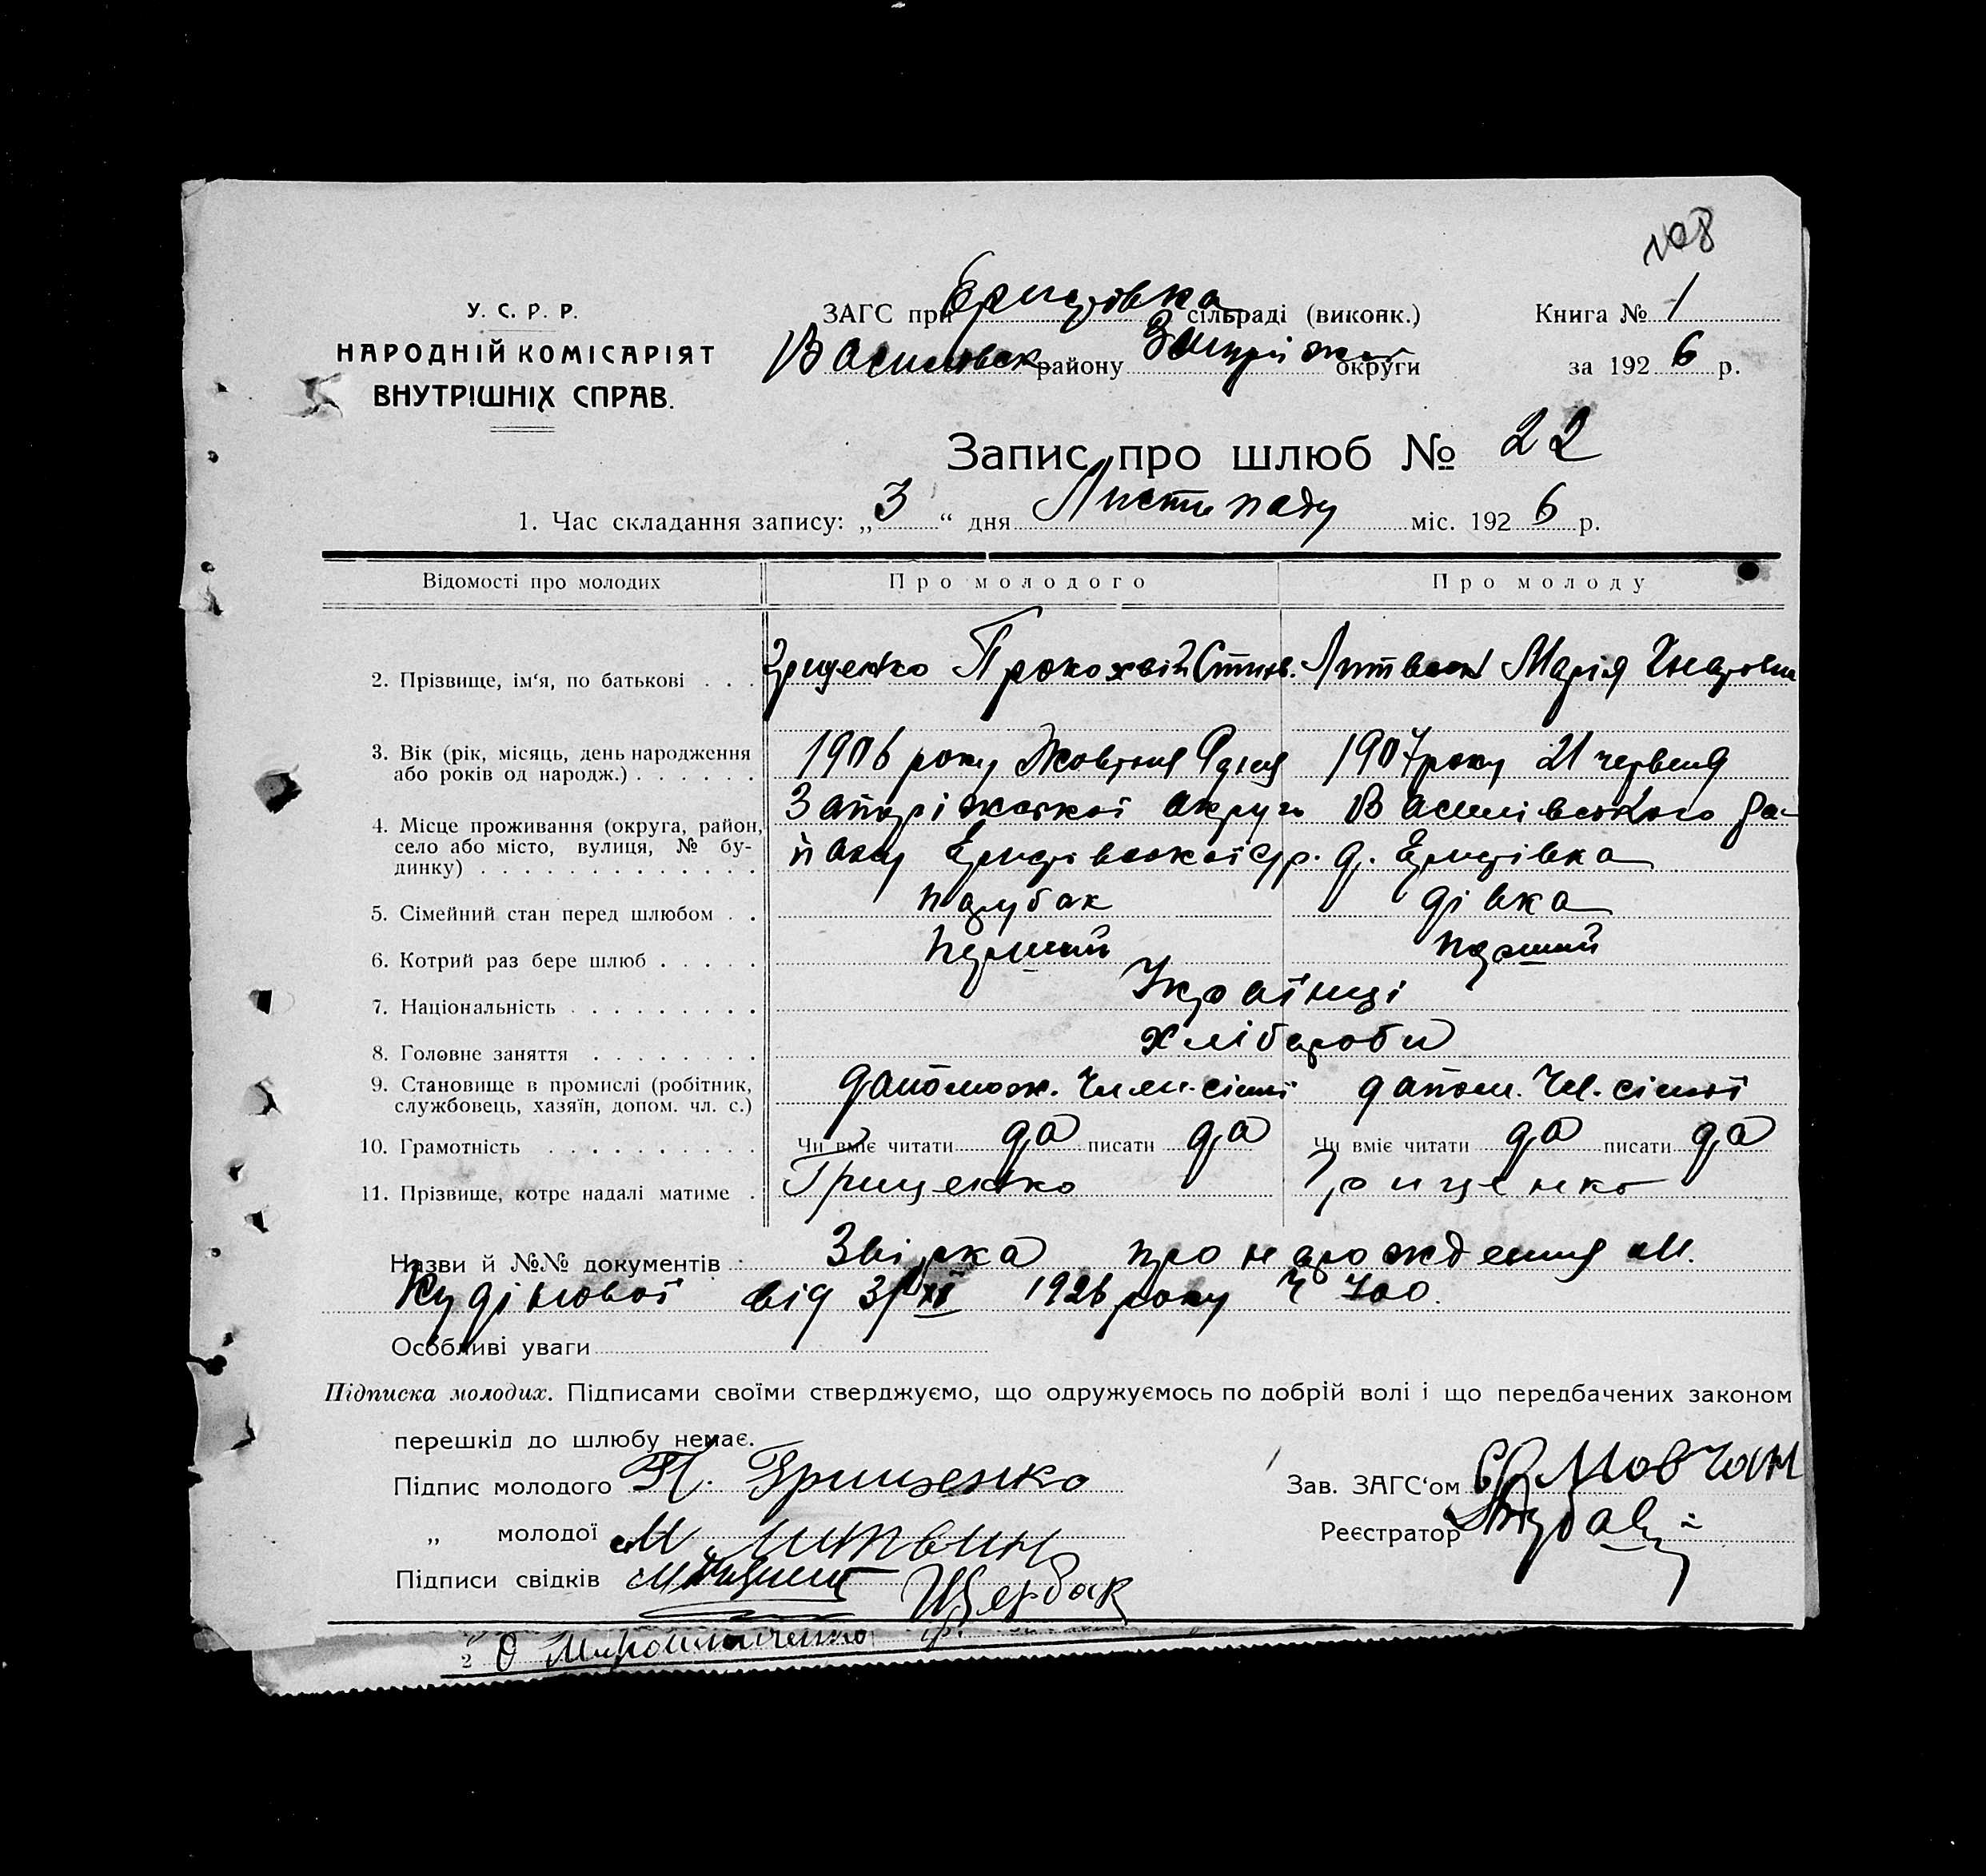 108
У. С. Р. Р.
НАРОДНІЙ КОМІСАРІЯТ
ВНУТРІШНІХ СПРАВ.
ЗАГС при Єристівка сільраді (виконк.)
Василівськ району Запоріжжя округи
Книга № 1
за 1926 р.
Запис про шлюб № 22
1. Час складання запису: „3“ дня Листопаду міс. 1926 р.
Відомості про молодих Про молодого Про молоду
2. Прізвище, ім‘я, по батькові . . . Грищенко Прокохвій Литвин Марія
3. Вік (рік, місяць, день народження
або років од народж.) . . . . . . 1906 року Жовтня 9 дня 1907 року 21 червня
4. Місце проживання (округа, район,
село або місто, вулиця, № бу-
динку) . . . . . . . . . . . . . Запоріжської округи Василівського ра-
йону Єристівської с/р. д. Єристівка
5. Сімейний стан перед шлюбом . . парубак дівка
6. Котрий раз бере шлюб . . . . . перший перший
7. Національність . . . . . . . . . Українці
8. Головне заняття . . . . . . . . хлібароби
9. Становище в промислі (робітник,
службовець, хазяїн, допом. чл. с.) дапомож. член. сімї дапом. чл. сімї
10. Грамотність . . . . . . . . . . Чи вміє читати да писати да Чи вміє читати да писати да
11. Прізвище, котре надалі матиме . Грищенко Грищенко
Назви й №№ документів Звірка про нарождення М.
від 1926 року Ч 700.
Особливі уваги
Підписка молодих. Підписами своїми стверджуємо, що одружуємось по добрій волі і що передбачених законом
перешкід до шлюбу немає.
Підпис молодого П. Грищенко
„ молодої М Литвин
Підписи свідків Щербак
Зав. ЗАГС‘ом Мовчан
Реєстратор
2 О Мирошниченко